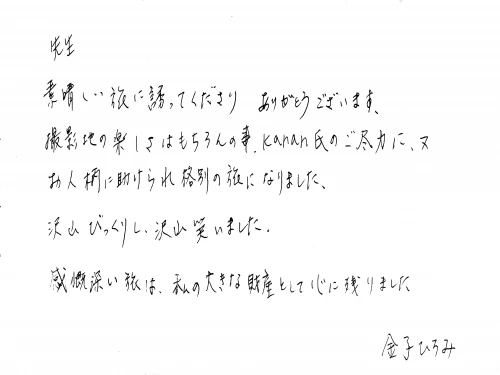 先生
素晴しい旅に誘ってくださり ありがとうございます、
撮影地の楽しさはもちろんの事、Kanan氏のご尽力に、又
お人柄に助けられ格別の旅になりました、
沢山びっくりし、沢山笑いました.
感慨深い旅は、私の大きな財産として心に残りました
金子ひろみ